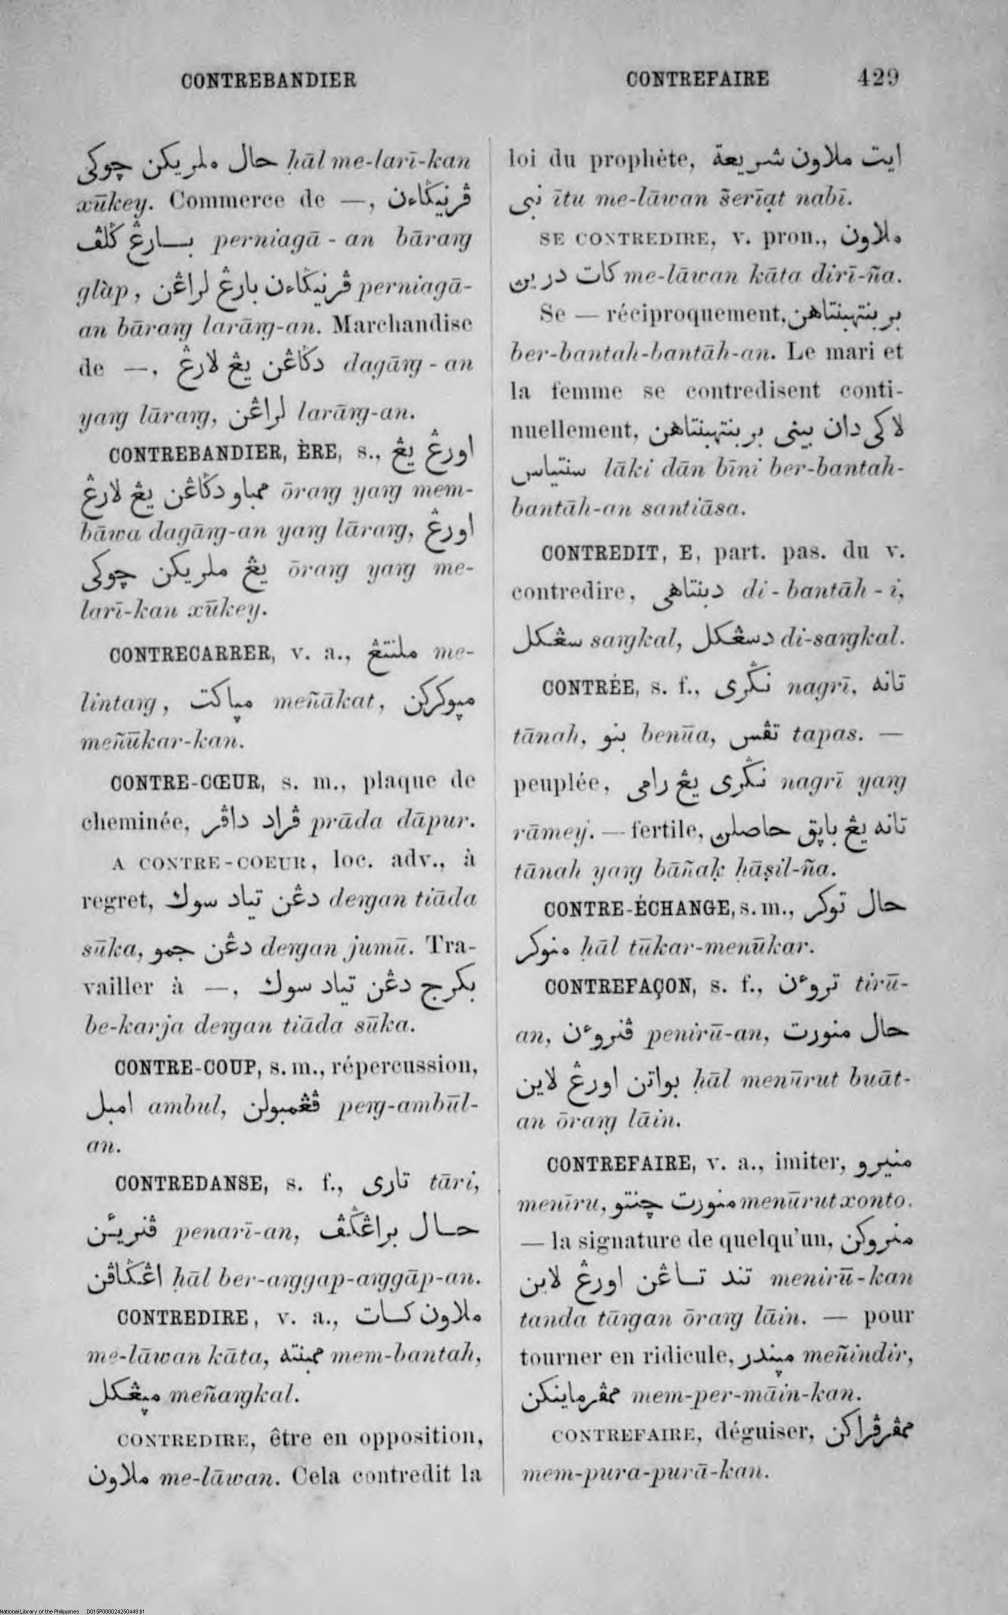 CONTREBANDIER
CONTREFAIRE 429
حال ملريكن چوكى ḥāl me-larī-kan
xūkey. Commerce de —, ڤرنيݢاءن
بــارڠ ݢلڤ perniagā-an bāraŋ
glàp, ڤرنيݢاءن بارڠ لراڠن perniagā-
an bāraŋ larāŋ-an. Marchandise
de —, دݢاڠن يڠ لارڠ dagāŋ-an
yaŋ lāraŋ, لراڠن larāŋ-an.
CONTREBANDIER, ÈRE, s., اورڠ يڠ
ممباو دݢاڠن يڠ لارڠ ōraŋ yaŋ mem-
bāwa dagāŋ-an yaŋ lāraŋ, اورڠ
يڠ ملريكن چوكى ōraŋ yaŋ me-
larī-kan xūkey.
CONTRECARRER, v. a., ملنتڠ me-
lintaŋ, مپاكت meñākat, مپوكركن
meñūkar-kan.
CONTRE-CŒUR, s. m., plaque de
cheminée, ڤراد داڤر prāda dāpur.
A CONTRE-COEUR, loc. adv., à
regret, دڠن تياد سوك deŋan tiāda
sūka, دڠن جمو deŋan jumū. Tra-
vailler à —, بكرج دڠن تياد سوك
be-karja deŋan tiāda sūka.
CONTRE-COUP, s. m., répercussion,
امبل ambul, ڤڠمبولن peŋ-ambūl-
an.
CONTREDANSE, s. f., تارى tāri,
ڤنريئن penarī-an, حــال براڠݢڤ
اڠݢاڤن ḥāl ber-aŋgap-aŋgāp-an.
CONTREDIRE, v. a., ملاون كــات
me-lāwan kāta, ممبنته mem-bantah,
مپڠكل meñaŋkal.
CONTREDIRE, être en opposition,
ملاون me-lāwan. Cela contredit la
loi du prophète, ايت ملاون شريعة
نبى ītu me-lāwan šerīạt nabī.
SE CONTREDIRE, v. pron., ملاون
كات درين me-lāwan kāta dirī-ña.
Se — réciproquement, بربنتهبنتاهن
ber-bantah-bantāh-an. Le mari et
la femme se contredisent conti-
nuellement, لاكى دان بينى بربنتهبنتاهن
سنتياس lāki dān bīni ber-bantah-
bantāh-an santiāsa.
CONTREDIT, E, part. pas. du v.
contredire, دبنتاهى di-bantāh-i,
سڠكل saŋkal, دسڠكل di-saŋkal.
CONTRÉE, s. f., نݢرى nagrī, تانه
tānah, بنو benūa, تڤس tapas. —
peuplée, نݢرى يڠ رامى nagrī yaŋ
rāmey. — fertile, تانه يڠ باپق حاصلن
tānah yaŋ bāñaḳ ḥāṣil-ña.
CONTRE-ÉCHANGE, s. m., حال توكر
منوكر ḥāl tūkar-menūkar.
CONTREFAÇON, s. f., تروءن tirū-
an, ڤنروءن penirū-an, حال منورت
بواتن اورڠ لاين ḥāl menūrut buāt-
an ōraŋ lāin.
CONTREFAIRE, v. a., imiter, منيرو
menīru, منورت چنتو menūrut xonto.
— la signature de quelqu'un, منروكن
تند تــاڠن اورڠ لاين menirū-kan
tanda tāŋan ōraŋ lāin. — pour
tourner en ridicule, مپندر meñindir,
ممڤرماينكن mem-per-māin-kan.
CONTREFAIRE, déguiser, ممڤرڤراكن
mem-pura-purā-kan.
National Library of the Philippines